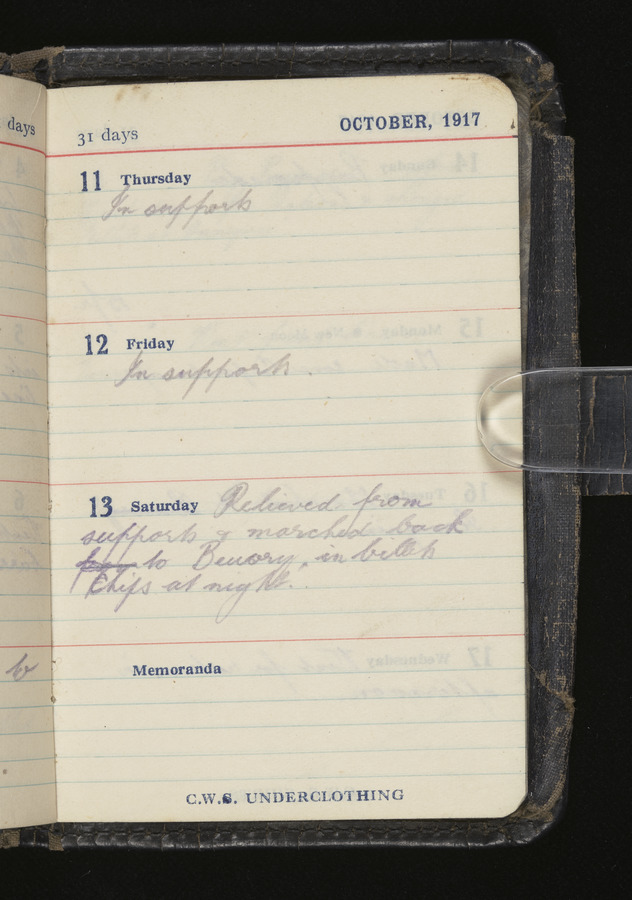 days
31 days
OCTOBER, 1917
11 Thursday
In support
12 Friday
In support.
13 Saturday Relieved from
support & marched back
to Beuvry, in billets
Chips at night.
Memoranda
C.W.S. UNDERCLOTHING